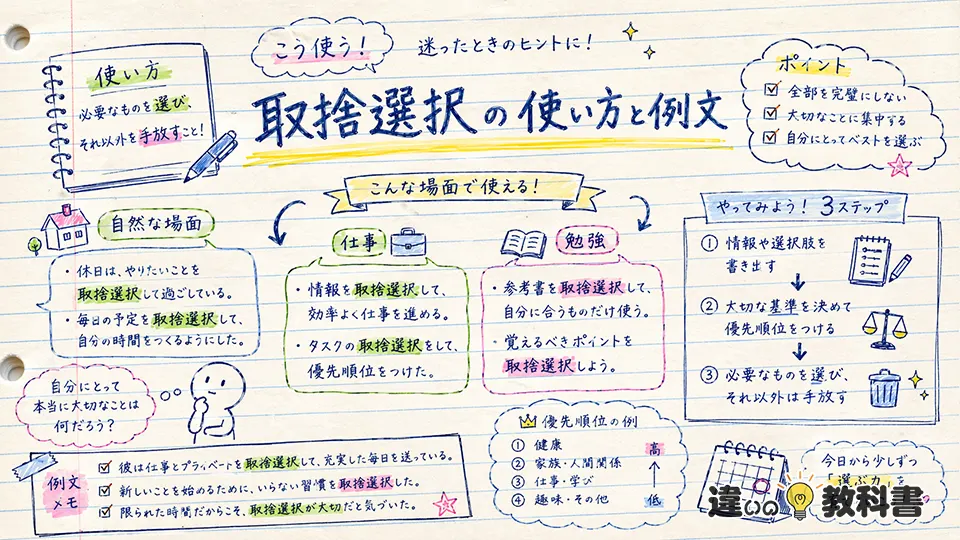 こう使う！
迷ったときのヒントに！
使い方
必要なものを選び、
それ以外を手放すこと！
取捨選択の使い方と例文
ポイント
全部を完璧にしない
大切なことに集中する
自分にとってベストを選ぶ
こんな場面で使える！
自然な場面
・休日は、やりたいことを
取捨選択して過ごしている。
・毎日の予定を取捨選択して、
自分の時間をつくるようにした。
仕事
・情報を取捨選択して、
効率よく仕事を進める。
・タスクの取捨選択をして、
優先順位をつけた。
勉強
・参考書を取捨選択して、
自分に合うものだけ使う。
・覚えるべきポイントを
取捨選択しよう。
やってみよう！ 3ステップ
① 情報や選択肢を
書き出す
② 大切な基準を決めて
優先順位をつける
③ 必要なものを選び、
それ以外は手放す
自分にとって
本当に大切なことは
何だろう？
例文
メモ
彼は仕事とプライベートを取捨選択して、充実した毎日を送っている。
新しいことを始めるために、いらない習慣を取捨選択した。
限られた時間だからこそ、取捨選択が大切だと気づいた。
優先順位の例
① 健康 高
② 家族・人間関係
③ 仕事・学び
④ 趣味・その他 低
今日から少しずつ
「選ぶ力」を
違いの教科書